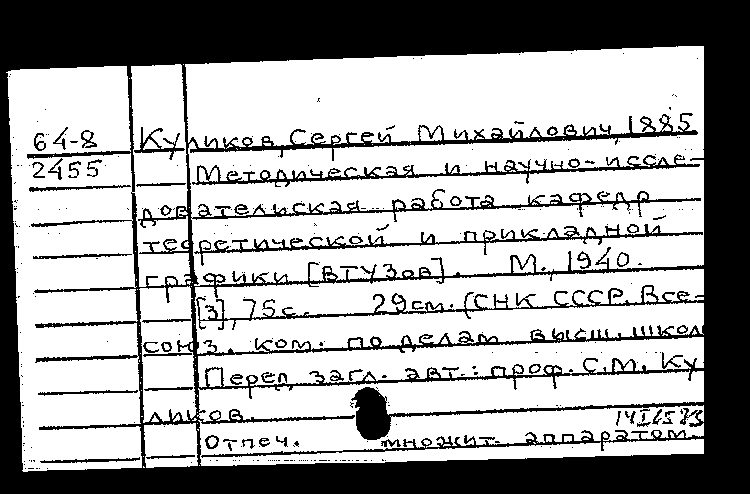 64-8 Куликов, Сергей Михайлович, 1885
2455 Методическая и научно-иссле-
довательская работа кафедр
теоретической и прикладной
графики [ВТУЗов]. М., 1940.
[3], 75 с. 29 см. (СНК СССР. Все-
союз. ком. по делам высш. школ
Перед загл. авт.: проф. С.М. Ку
ликов.
Отпеч. множит. аппаратом.